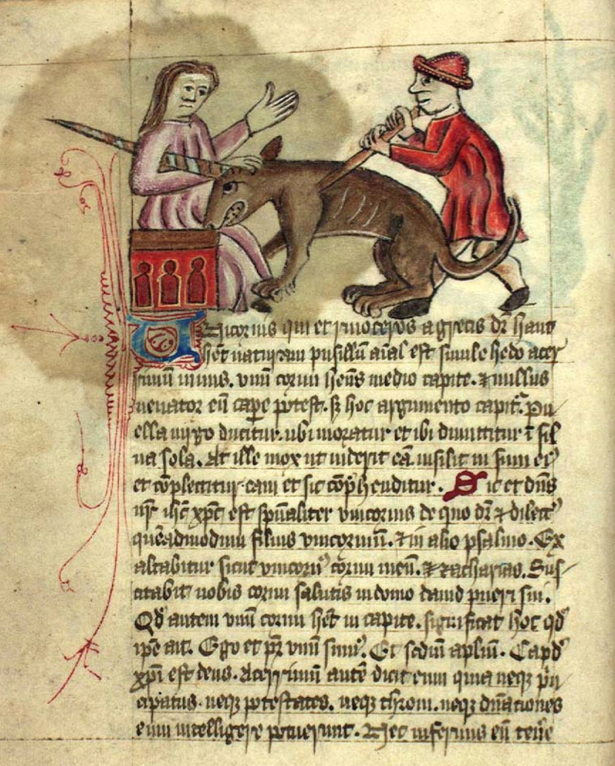 Unicornus qui et rinoceros a grecis dr̄ hanc
h̄et naturam pusillū aīal est simile hedo acer
rimū nimis. vnū cornu h̄ens medio capite. ⁊ nullus
uenator eū caꝑe potest. ẜ hoc argumento capit᷑. Pu
ella uirgo ducitur. ubi moratur et ibi dimittitur ī sil
ua sola. At ille mox ut uiderit eā insilit in sinu eiꝰ
et cōplectitur eam et sic cōp̄henditur. Sic et dn̄s
nr̄ ih̄c xp̄c est spūaliter vnicornus de quo dr̄ ⁊ dilectꝰ
quēadmodum filius vnicornuū. ⁊ in alio psalmo. Ex
altabitur sicut vnicornꝰ cornu meū. ⁊ zacharias. Sus
citabit nobis cornu salutis in domo dauid pueri sui.
Qd̄ autem vnū cornu h̄et in capite. significat hoc qd̄
ip̄e ait. Ego et pr̄ vnū sumꝰ. Et scdm̄ aplm̄.
xp̄i est deus. Acerrimū autē dicit eum quia neqꝫ pͥn
cipatus. neqꝫ potestates. neqꝫ throni. neqꝫ dn̄ationes
eum intelligere potuerunt. Nec infernus eū tene